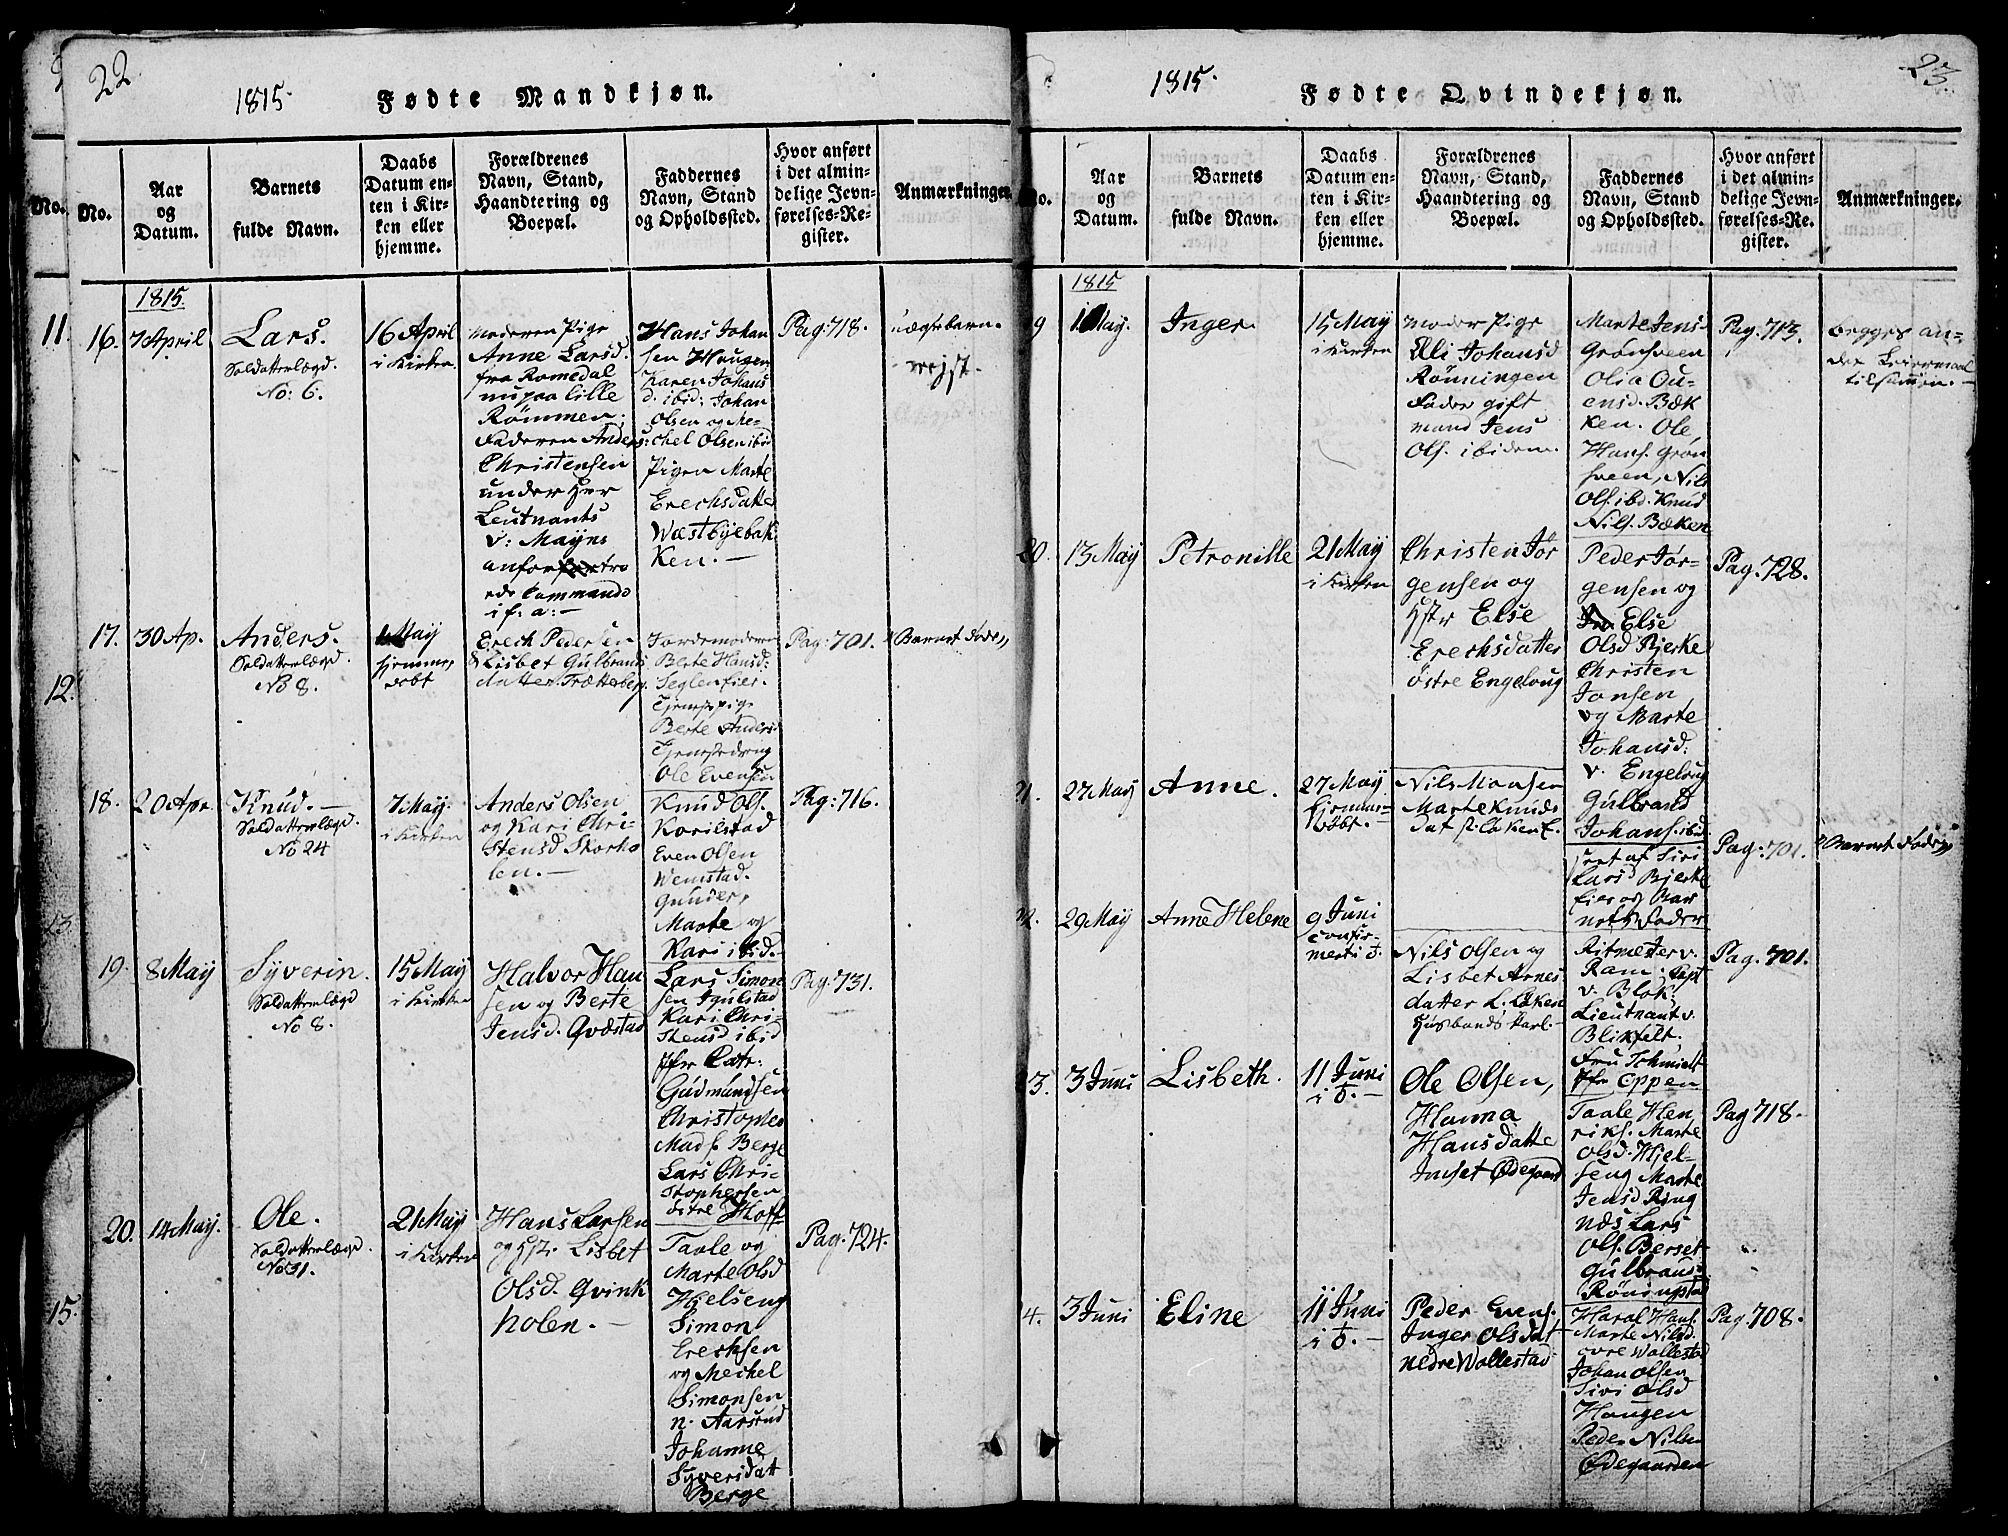 22
1815.
Fødte Mandkjøn.
No.
Aar
og
Datum.
Barnets
fulde Navn.
Daabs
Datum en-
ten i Kir-
ken eller
hjemme.
Forældrenes
Navn, Stand,
Haandtering og
Boepæl.
Faddernes
Navn, Stand
og Opholdssted.
Hvor anført
i det almin-
delige Jevn-
førelses-Re-
gister.
Anmærkninger.
1815.
16.
7 April
Lars.
Soldatterlægd.
No: 6.
16 April
i Kirken.
Moderen Pige
Anne Larsd.
fra Romedal
nu paa lille
Rømmen;
Faderen Anders
Christensen
under Her
Leutnants
v: Mayns
anfortro
ede Commando
Hans Johan
sen Haugen
Karen Johans
d. ibid: Johan
Olsen og Me-
chel Olsen ibid
Pigen Marte
Erechsdatter
Wæstbyebak
ken. —
Pag: 718.
uægte barn.
17.
30 Ap.
Anders.
Soldatterlægd.
No 8.
May
hjemme,
døbt
Erech Pedersen
& Lisbet Gulbrands
datter Trætteberg.
Jordemoderen
Berte Hansd:
Seglen Eier.
Tjenestepige
Berte Anders.
Tjenestedreng
Ole Evensen
Pag: 701.
Barnet døde
18.
20 Apr.
Knud. —
Soldatterlægd.
No 24
7 May.
i Kirken
Anders Olsen
og Kari Chri-
stensd Storho
len. —
Knud Ols.
Korilstad
Even Olsen
Wemstad.
Gunder,
Marte og
Kari ibid.
Pag: 716.
19.
8 May
Syverin.
Soldatterlægd
No 8.
15 May
i Kirken
Halvor Han
sen og Berte
Jensd. Qvæstad
Lars Simon
sen Igulstad
Kari Chri-
stensd ibid
Jfr Catr:
Gudmundsen
Christopher
Mads. Berge
Lars Chri-
stophersen
ditre Hoff
Pag: 731.
20.
14 May.
Ole.
Soldatterlægd.
No 31.
21 May
i Kirken
Hans Larsen
og Hst. Lisbet
Olsd. Qvink
holen. —
Taale og
Marte Olsd
Hjelseng
Simon
Erechsen
og Mechel
Simonsen
n. Aarsrud
Johanne
Syversdat
Berge
Pag: 724.
11
12.
13
15.
23.
1815.
Fødte Qvindekjøn.
No.
Aar
og
Datum.
Barnets
fulde Navn.
Daabs
Datum en-
ten i Kir-
ken eller
hjemme.
Forældrenes
Navn, Stand,
Haandtering og
Boepæl.
Faddernes
Navn, Stand
og Opholdssted.
Hvor anført
i det almin-
delige Jevn-
førelses-Re-
gister.
Anmærkninger.
1815
19
May.
Inger.
15 May
i Kirken
Moder Pige
Eli Johansd
Rønningen
Fader gift
mand Jens
Ols. ibidem.
Marte Jensd
Grønsveen
Olia Ou-
ensd. Bæk
ken. Ole
Hans. Grøn
sveen, Nils
Ols. ibd. Knud
Nils. Bæken
Pag: 713.
begges an-
det Leiermaal
tilsamen. —
20.
13 May
Petronille
21 May
i Kirken
Christen Jør
gensen og
Hstr Else
Erechsdatter
østre Engeloug
Peder Jør-
gensen og
Else
Olsd Bjerke
Christen
Jonsen
og Marte
Johansd.
v. Engeloug
Gulbrand
Johans. ibid.
Pag: 728.
21.
27 May
Anne.
27 May
hjemme-
døbt. —
Nils Monsen
Marte Knuds
dat
baaret af Siri
Lars d Bjerke
Eier og Bar
nets Fader
Pag: 701.
Barnet døde
22.
29 May
Anne Helene
9 Juni
confir-
mert i
Nils Olsen og
Lisbet Arnes
datter L. Løken
Husbonds Karl. —
Ritmester v.
Ram. Capt
v. Blok:
Lieutnant v.
Blikfelt.
Fru Schmidt
Jfr Oppen
Pag. 701.
23.
3 Juni
Lisbeth.
11 Juni
Ole Olsen,
Hanna
Hansdatte
Inset Ødegaard
Taale Hen
riks. Marte
Olsd. Hjel-
seng Marte
Jensd Ring
næs Lars
Ols. Berset
Gulbrans:
Rønningstad
Pag 718.
24.
3 Juni
Eline
11 Juni
Peder Evens.
Inger Olsdat
nedre Wollestad
Haral Hans.
Marte Nilsd.
øvre Wollestad
Johan Olsen
Siri Olsd
Haugen
Peder Nilsen
Ødegaarden
Pag. 708.